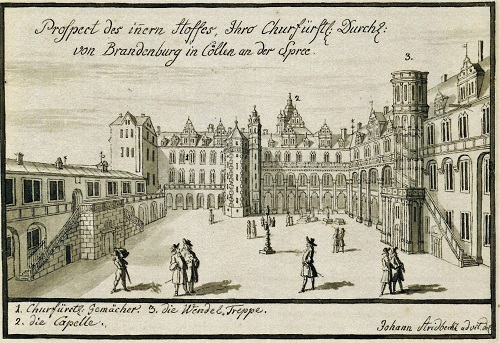 Prospect des iñern Hoffes, Ihro Churfürstl: Durchl:
von Brandenburg in Cölln an der Spree.
3.
2.
1. Churfürstl. Gemächer. 3. die Wendel Treppe.
2. die Capelle.
Johann Stridbeck ad vit. del.